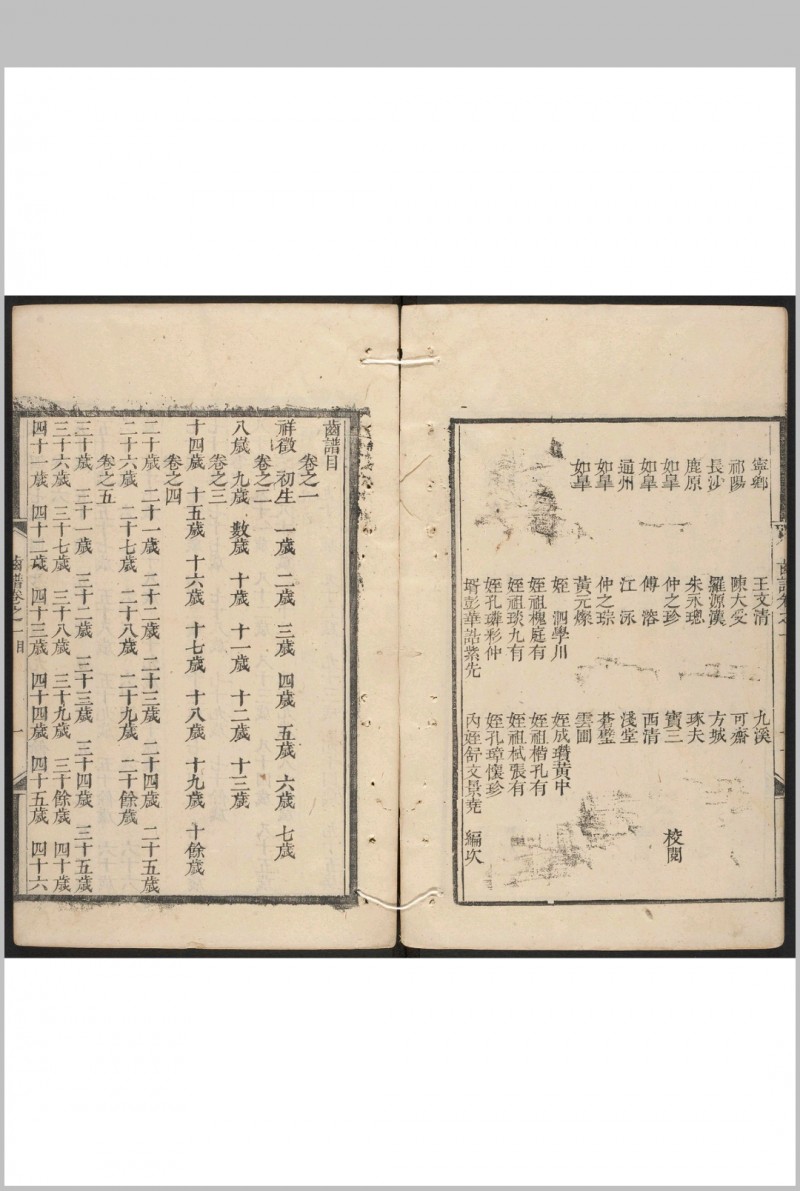 寧鄉 王文清 九溪
祁陽 陳大受 可齋
長沙 羅源漢 方城
鹿原 朱永璁 琢夫
如臯 仲之珍 寶三 校閱
如臯 傅溶 西清
通州 江泳 淺堂
如臯 仲之琮 蒼璧
如臯 黃元燦 雲圃
姪泗學川 姪成瓚黃中
姪祖槐庭有 姪祖楷孔有
姪祖琰九有 姪祖栻張有
姪孔璘彩仲 姪孔璋懷珍
壻彭華誥紫先 內姪舒文景堯 編次
齒譜目
卷之一
祥徵 初生 一歲 二歲 三歲 四歲 五歲 六歲 七歲
卷之二
八歲 九歲 數歲 十歲 十一歲 十二歲 十三歲
卷之三
十四歲 十五歲 十六歲 十七歲 十八歲 十九歲 十餘歲
卷之四
二十歲 二十一歲 二十二歲 二十三歲 二十四歲 二十五歲
二十六歲 二十七歲 二十八歲 二十九歲 二十餘歲
卷之五
三十歲 三十一歲 三十二歲 三十三歲 三十四歲 三十五歲
三十六歲 三十七歲 三十八歲 三十九歲 三十餘歲 四十歲
四十一歲 四十二歲 四十三歲 四十四歲 四十五歲 四十六
齒譜卷之一目 一